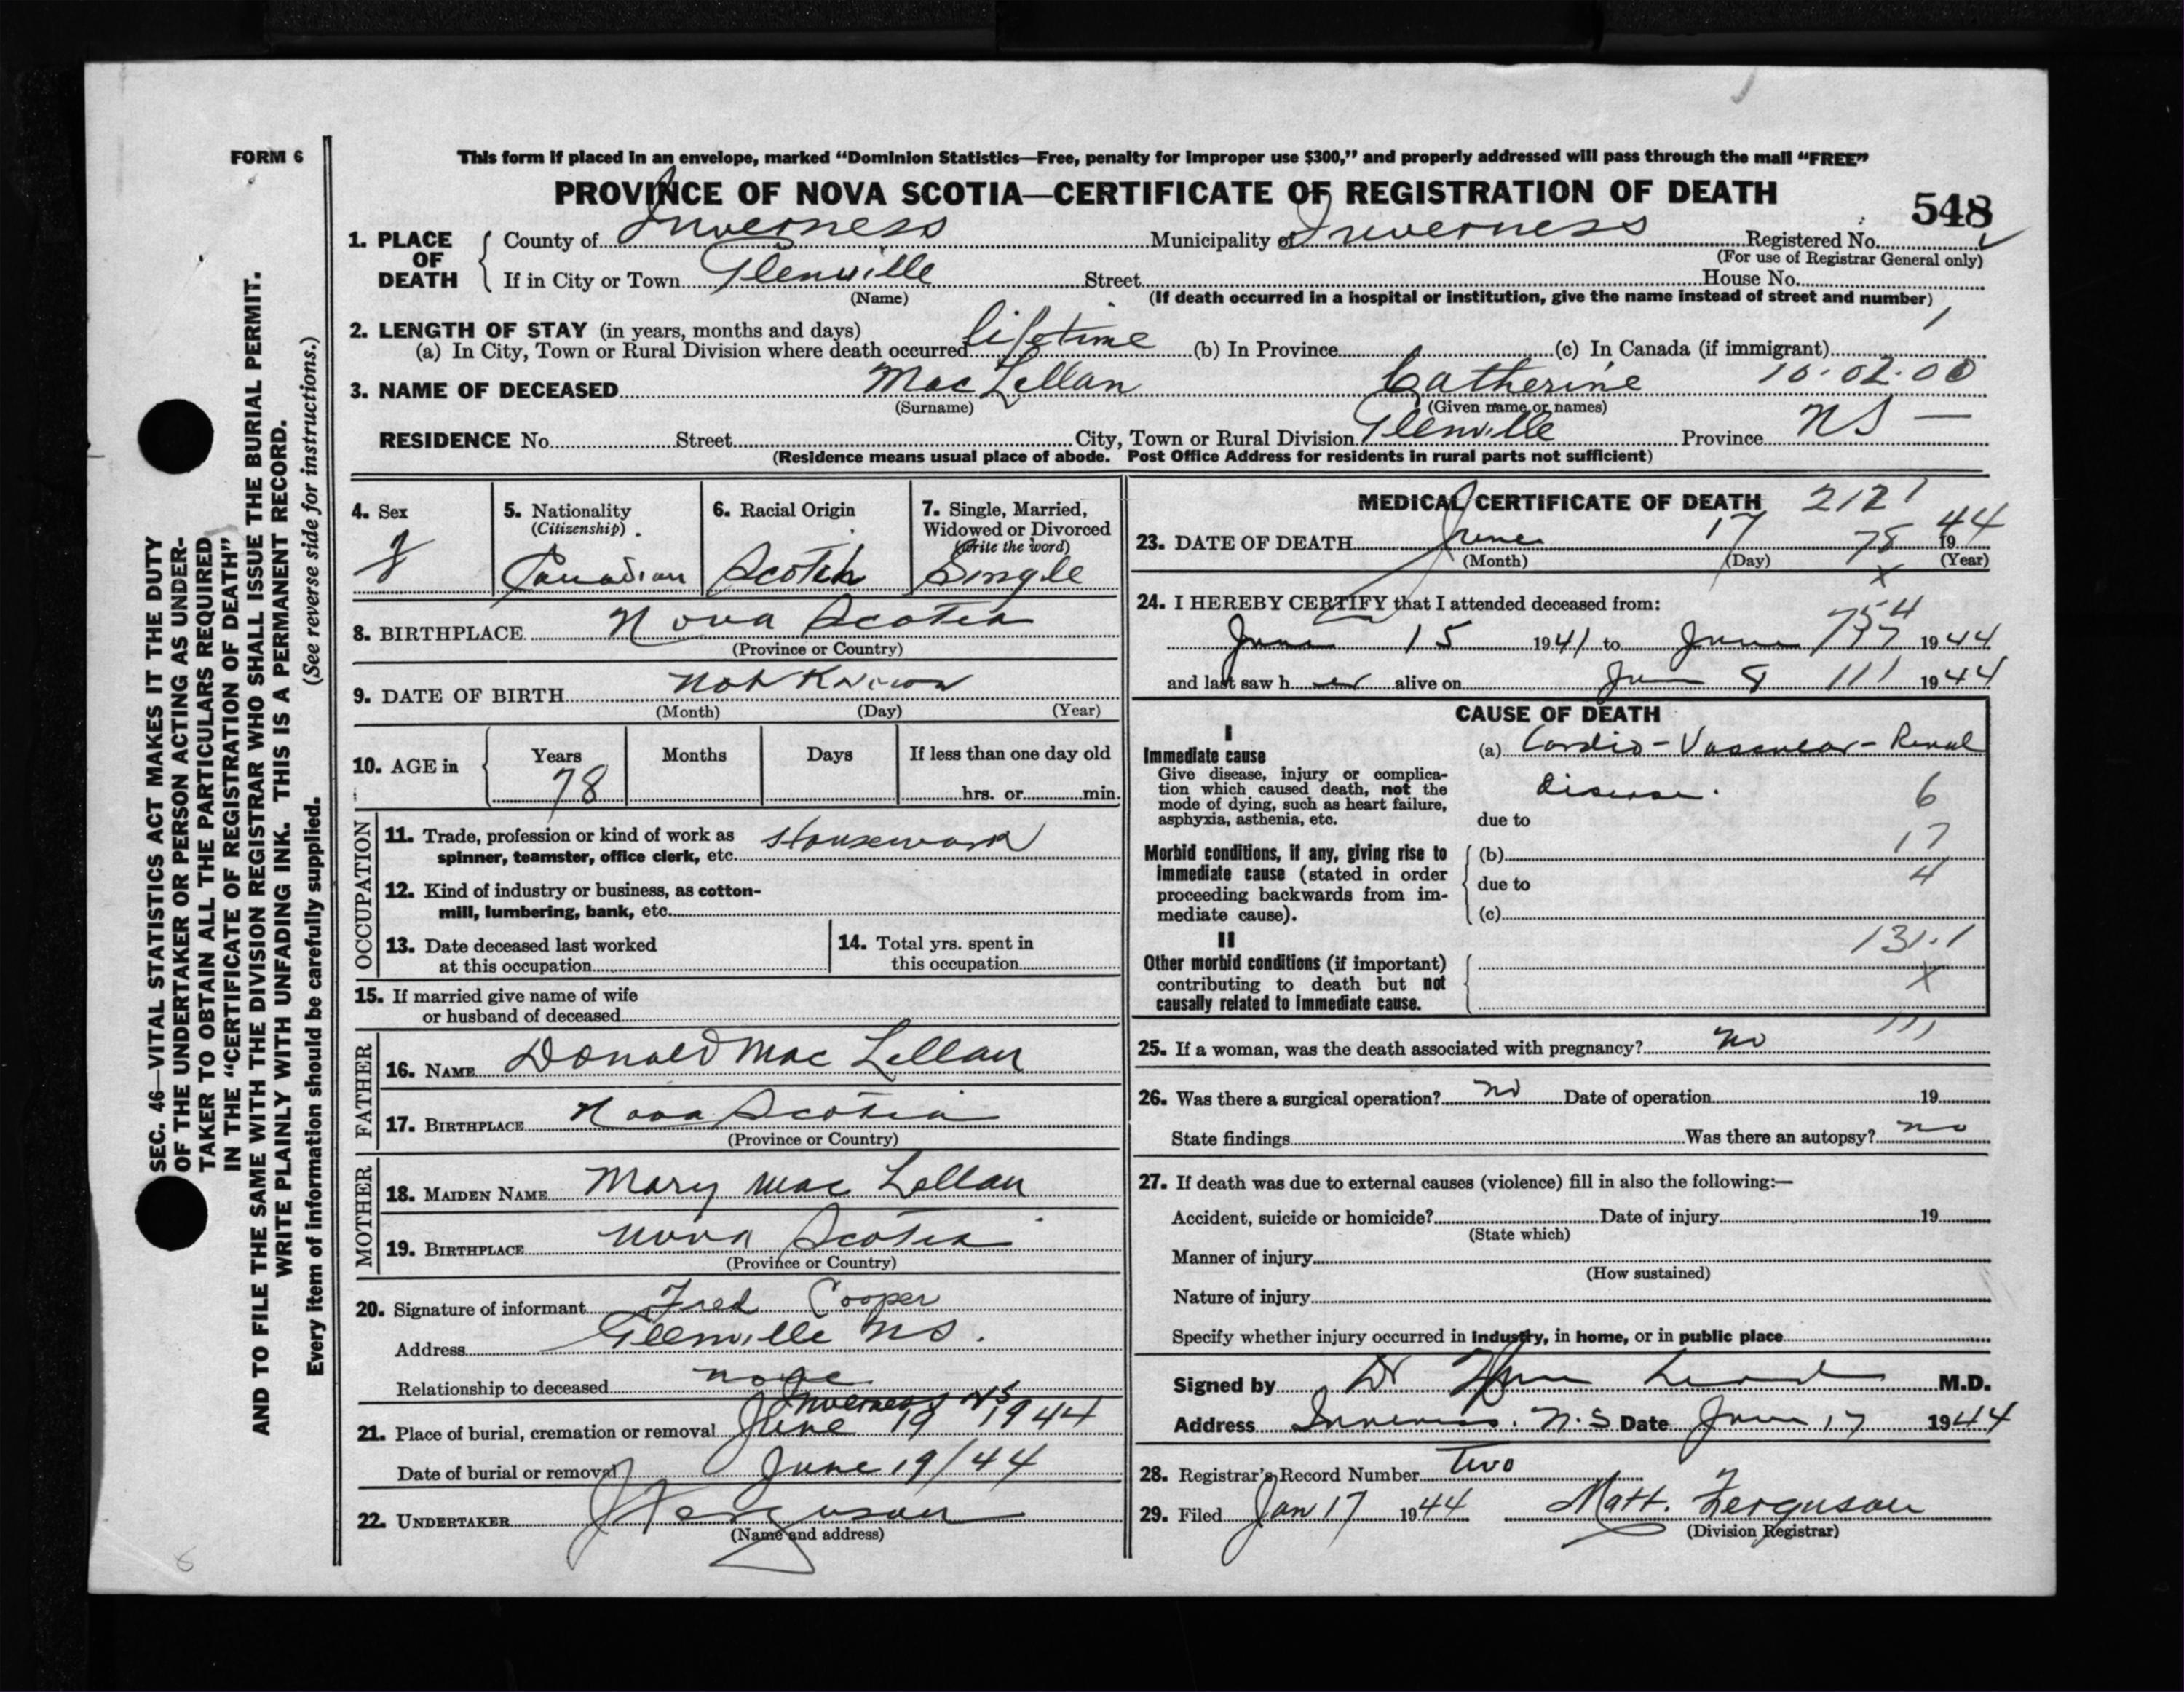 FORM 6
This form if placed in an envelope, marked “Dominion Statistics—Free, penalty for improper use $300,” and properly addressed will pass through the mail “FREE”
PROVINCE OF NOVA SCOTIA—CERTIFICATE OF REGISTRATION OF DEATH
548
1. PLACE OF DEATH County of Inverness Municipality of Inverness Registered No.
(For use of Registrar General only)
If in City or Town Glenville Street House No.
(Name) (If death occurred in a hospital or institution, give the name instead of street and number)
2. LENGTH OF STAY (in years, months and days)
(a) In City, Town or Rural Division where death occurred lifetime (b) In Province (c) In Canada (if immigrant)
3. NAME OF DECEASED MacLellan Catherine 10.02.00
(Surname) (Given name or names)
RESIDENCE No. Street City, Town or Rural Division Glenville Province NS —
(Residence means usual place of abode. Post Office Address for residents in rural parts not sufficient)
4. Sex f
5. Nationality (Citizenship) Canadian
6. Racial Origin Scotch
7. Single, Married, Widowed or Divorced (Write the word) Single
8. BIRTHPLACE Nova Scotia
(Province or Country)
9. DATE OF BIRTH Not Known
(Month) (Day) (Year)
10. AGE in Years Months Days If less than one day old
78 hrs. or min.
OCCUPATION
11. Trade, profession or kind of work as spinner, teamster, office clerk, etc. Housework
12. Kind of industry or business, as cotton-mill, lumbering, bank, etc.
13. Date deceased last worked at this occupation
14. Total yrs. spent in this occupation
15. If married give name of wife or husband of deceased
FATHER
16. NAME Donald MacLellan
17. BIRTHPLACE Nova Scotia
(Province or Country)
MOTHER
18. MAIDEN NAME Mary MacLellan
19. BIRTHPLACE Nova Scotia
(Province or Country)
20. Signature of informant Fred Cooper
Address Glenville NS.
Relationship to deceased none
Inverness NS
21. Place of burial, cremation or removal June 19 1944
Date of burial or removal June 19/44
22. UNDERTAKER Ferguson
(Name and address)
MEDICAL CERTIFICATE OF DEATH 2121
23. DATE OF DEATH June 17 78 1944
(Month) (Day) (Year)
X
24. I HEREBY CERTIFY that I attended deceased from:
754
June 15 1941 to June 17 1944
and last saw her alive on June 8 111 1944
CAUSE OF DEATH
I
Immediate cause (a) Cardio-Vascular-Renal
Give disease, injury or complication which caused death, not the mode of dying, such as heart failure, asphyxia, asthenia, etc. disease. 6
due to
17
Morbid conditions, if any, giving rise to immediate cause (stated in order proceeding backwards from immediate cause). (b)
due to 4
(c)
II 131.1
Other morbid conditions (if important) contributing to death but not causally related to immediate cause. X
111
25. If a woman, was the death associated with pregnancy? no
26. Was there a surgical operation? no Date of operation 19
State findings Was there an autopsy? no
27. If death was due to external causes (violence) fill in also the following:—
Accident, suicide or homicide? Date of injury 19
(State which)
Manner of injury
(How sustained)
Nature of injury
Specify whether injury occurred in industry, in home, or in public place
Signed by Dr M.D.
Address Inverness. N.S Date June 17 1944
28. Registrar's Record Number Two
29. Filed Jan 17 1944 Matt. Ferguson
(Division Registrar)
SEC. 46—VITAL STATISTICS ACT MAKES IT THE DUTY
OF THE UNDERTAKER OR PERSON ACTING AS UNDER-
TAKER TO OBTAIN ALL THE PARTICULARS REQUIRED
IN THE “CERTIFICATE OF REGISTRATION OF DEATH”
AND TO FILE THE SAME WITH THE DIVISION REGISTRAR WHO SHALL ISSUE THE BURIAL PERMIT.
WRITE PLAINLY WITH UNFADING INK. THIS IS A PERMANENT RECORD.
Every item of information should be carefully supplied. (See reverse side for instructions.)